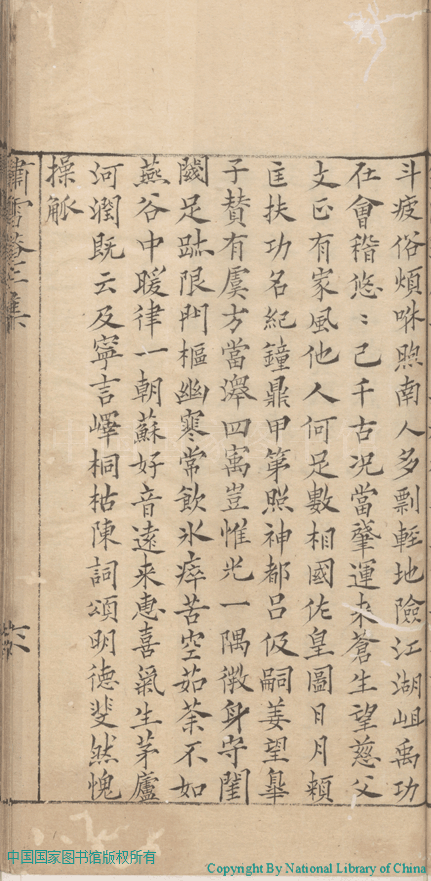 斗疲俗煩咻煦南人多剽輕地險江湖岨禹功
在會稽悠〻已千古况當肇運来蒼生望慈父
文正有家風他人何足數相國佐皇圖日月頼
匡扶功名紀鐘鼎甲第照神都吕伋嗣姜望皐
子賛有虞方當澤四寓豈惟光一隅微身守閨
閾足趾限門樞幽寒常飲氷瘁苦空茹荼不如
燕谷中暖律一朝蘇好音遠来恵喜氣生茅廬
河潤既云及寧言嶧桐枯陳詞頌明德斐然愧
操觚
六
中国国家图书馆版权所有
Copyright By National Library of China